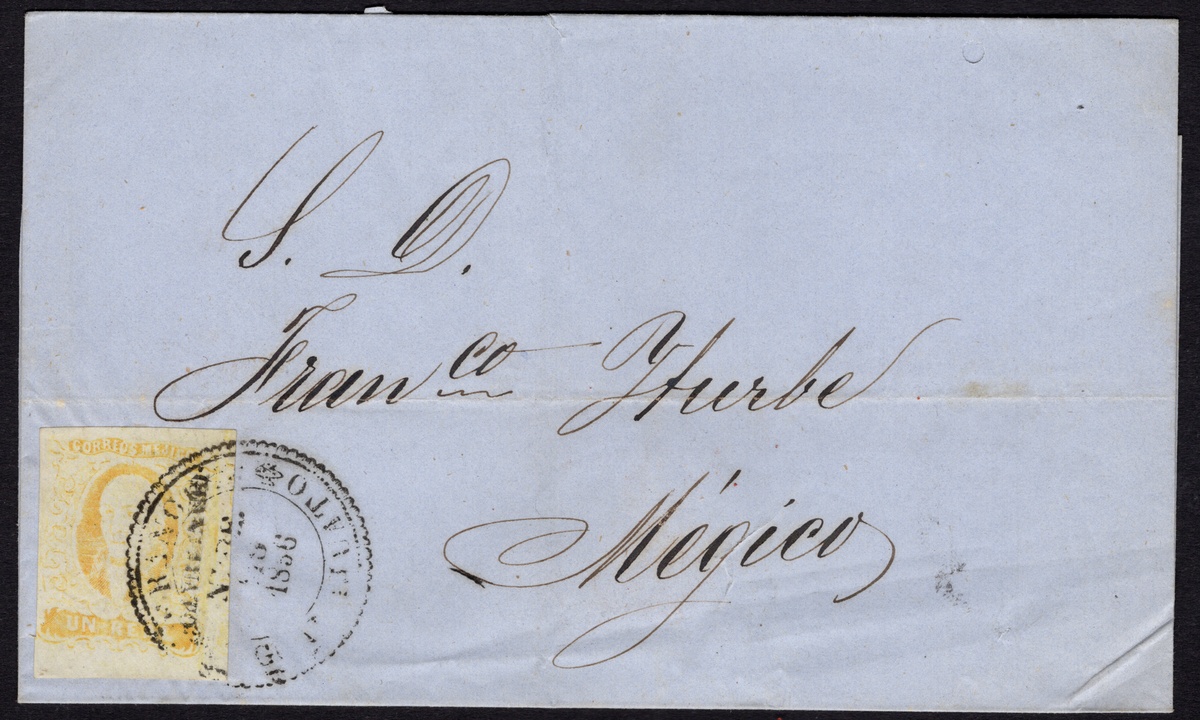 S. D.
Fran co Yturbe
Mégico
CORREOS MEJI
UN RE
FRANCO
1856